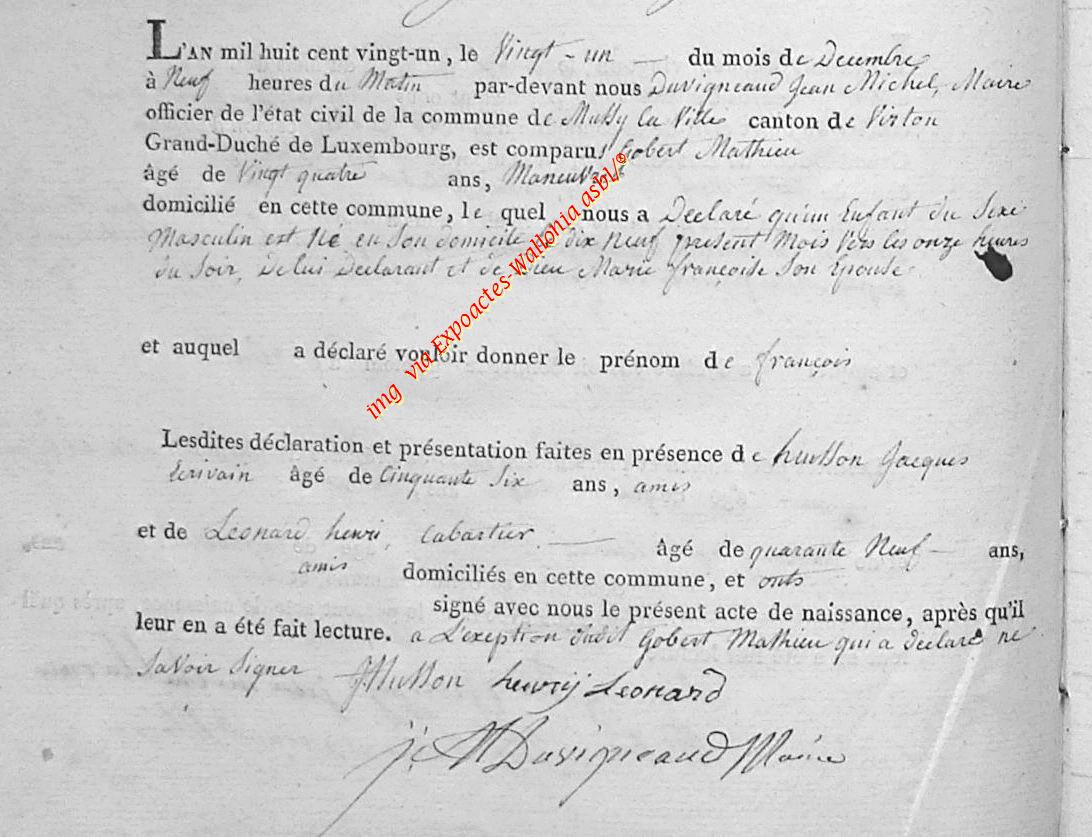 L'AN mil huit cent vingt-un, le Vingt - un — du mois de Decembre
à Neuf heures du Matin par-devant nous Duvigneaud Jean Michel, Maire
officier de l'état civil de la commune de Mussy la Ville canton de Virton
Grand-Duché de Luxembourg, est comparu Gobert Mathieu
âgé de Vingt quatre ans,
domicilié en cette commune, le quel nous a Declaré qu'un Enfant du Sexe
Masculin est Né en Son domicile dix Neuf present Mois Vers les onze heures
du Soir, de lui Declarant et de Marie françoise Son Epouse.
et auquel a déclaré vouloir donner le prénom de françois
Lesdites déclaration et présentation faites en présence de husson Jacques
Ecrivain âgé de Cinquante Six ans, amis
et de Leonard henri, Cabartier — âgé de quarante Neuf — ans,
amis domiciliés en cette commune, et onts
signé avec nous le présent acte de naissance, après qu'il
leur en a été fait lecture. a L'exeption dudit Gobert Mathieu qui a declaré ne
Savoir Signer JHusson henrÿ Leonard
Duvigneaud Maire
img via Expoactes-Wallonia asbl/©